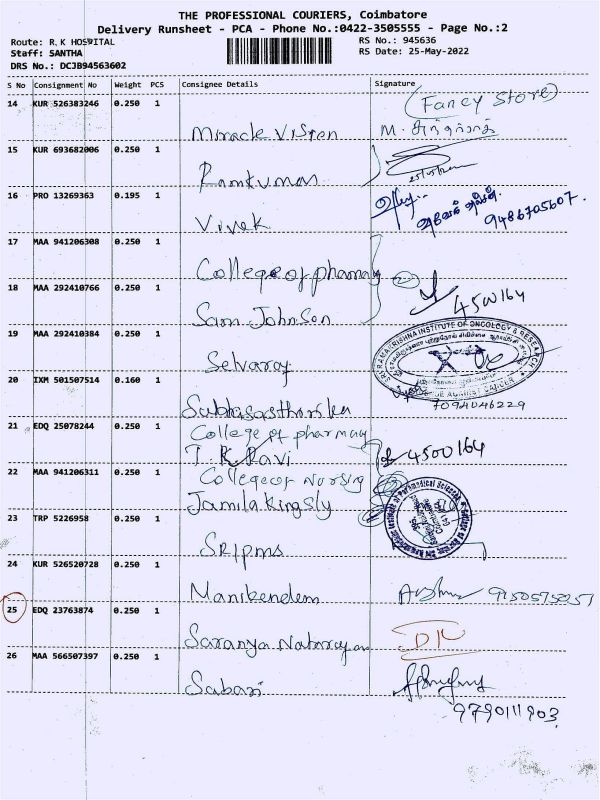 THE PROFESSIONAL COURIERS, Coimbatore
Delivery Runsheet - PCA - Phone No.:0422-3505555 - Page No.:2
Route: R.K HOSPITAL
RS No.: 945636
Staff: SANTHA
RS Date: 25-May-2022
DRS No.: DCJB94563602
S No Consignment No Weight PCS Consignee Details Signature
14 KUR 526383246 0.250 1
(Fancy Store)
Miracle Vision
15 KUR 693682006 0.250 1
Ramkumar
16 PRO 13269363 0.195 1
Vivek
9486705607.
17 MAA 941206308 0.250 1
College of pharmacy
18 MAA 292410766 0.250 1
4500164
Sam Johnson
19 MAA 292410384 0.250 1
SRI RAMAKRISHNA INSTITUTE OF ONCOLOGY & RESEARCH
Selvaraj
20 IXM 501507514 0.160 1
AGAINST CANCER
7094046229
21 EDQ 25078244 0.250 1
College of pharmacy
T.R.Ravi
4500164
22 MAA 941206311 0.250 1
College of Nursing
Jamila Kingsly
23 TRP 5226958 0.250 1
SRIPMS
24 KUR 526520728 0.250 1
Manikendem
25 EDQ 23763874 0.250 1
Saranya Natarayan
26 MAA 566507397 0.250 1
Sabari
9790111903